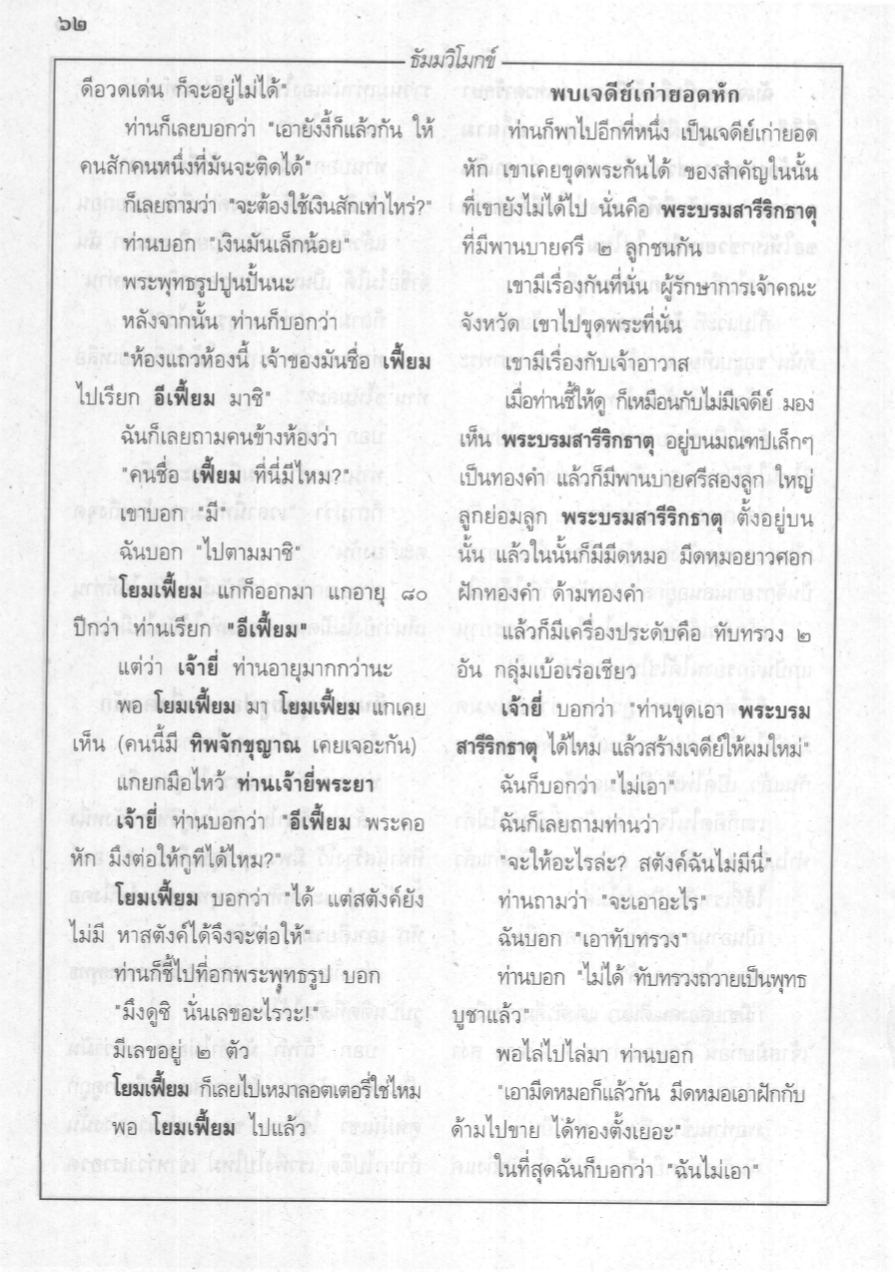 ๖๒
ธัมมวิโมกข์
ดีอวดเด่น ก็จะอยู่ไม่ได้"
ท่านก็เลยบอกว่า "เอายังงี้ก็แล้วกัน ให้
คนสักคนหนึ่งที่มันจะติดได้"
ก็เลยถามว่า "จะต้องใช้เงินสักเท่าไหร่?"
ท่านบอก "เงินมันเล็กน้อย"
พระพุทธรูปปูนปั้นนะ
หลังจากนั้น ท่านก็บอกว่า
"ห้องแถวห้องนี้ เจ้าของมันชื่อ เฟี้ยม
ไปเรียก อีเฟี้ยม มาซิ"
ฉันก็เลยถามคนข้างห้องว่า
"คนชื่อ เฟี้ยม ที่นี่มีไหม?"
เขาบอก "มี"
ฉันบอก "ไปตามมาซิ"
โยมเฟี้ยม แกก็ออกมา แกอายุ ๘๐
ปีกว่า ท่านเรียก "อีเฟี้ยม"
แต่ว่า เจ้ายี่ ท่านอายุมากกว่านะ
พอ โยมเฟี้ยม มา โยมเฟี้ยม แกเคย
เห็น (คนนี้มี ทิพจักขุญาณ เคยเจอะกัน)
แกยกมือไหว้ ท่านเจ้ายี่พระยา
เจ้ายี่ ท่านบอกว่า "อีเฟี้ยม พระคอ
หัก มึงต่อให้กูทีได้ไหม?"
โยมเฟี้ยม บอกว่า "ได้ แต่สตังค์ยัง
ไม่มี หาสตังค์ได้จึงจะต่อให้"
ท่านก็ชี้ไปที่อกพระพุทธรูป บอก
"มึงดูซิ นั่นเลขอะไรวะ!"
มีเลขอยู่ ๒ ตัว
โยมเฟี้ยม ก็เลยไปเหมาลอตเตอรี่ใช่ไหม
พอ โยมเฟี้ยม ไปแล้ว
พบเจดีย์เก่ายอดหัก
ท่านก็พาไปอีกที่หนึ่ง เป็นเจดีย์เก่ายอด
หัก เขาเคยขุดพระกันได้ ของสำคัญในนั้น
ที่เขายังไม่ได้ไป นั่นคือ พระบรมสารีริกธาตุ
ที่มีพานบายศรี ๒ ลูกชนกัน
เขามีเรื่องกันที่นั่น ผู้รักษาการเจ้าคณะ
จังหวัด เขาไปขุดพระที่นั่น
เขามีเรื่องกับเจ้าอาวาส
เมื่อท่านชี้ให้ดู ก็เหมือนกับไม่มีเจดีย์ มอง
เห็น พระบรมสารีริกธาตุ อยู่บนมณฑปเล็กๆ
เป็นทองคำ แล้วก็มีพานบายศรีสองลูก ใหญ่
ลูกย่อมลูก พระบรมสารีริกธาตุ ตั้งอยู่บน
นั้น แล้วในนั้นก็มีมีดหมอ มีดหมอยาวศอก
ฝักทองคำ ด้ามทองคำ
แล้วก็มีเครื่องประดับคือ ทับทรวง ๒
อัน กลุ่มเบ้อเร่อเชียว
เจ้ายี่ บอกว่า "ท่านขุดเอา พระบรม
สารีริกธาตุ ได้ไหม แล้วสร้างเจดีย์ให้ผมใหม่"
ฉันก็บอกว่า "ไม่เอา"
ฉันก็เลยถามท่านว่า
"จะให้อะไรล่ะ? สตังค์ฉันไม่มีนี่"
ท่านถามว่า "จะเอาอะไร"
ฉันบอก "เอาทับทรวง"
ท่านบอก "ไม่ได้ ทับทรวงถวายเป็นพุทธ
บูชาแล้ว"
พอไล่ไปไล่มา ท่านบอก
"เอามีดหมอก็แล้วกัน มีดหมอเอาฝักกับ
ด้ามไปขาย ได้ทองตั้งเยอะ"
ในที่สุดฉันก็บอกว่า "ฉันไม่เอา"